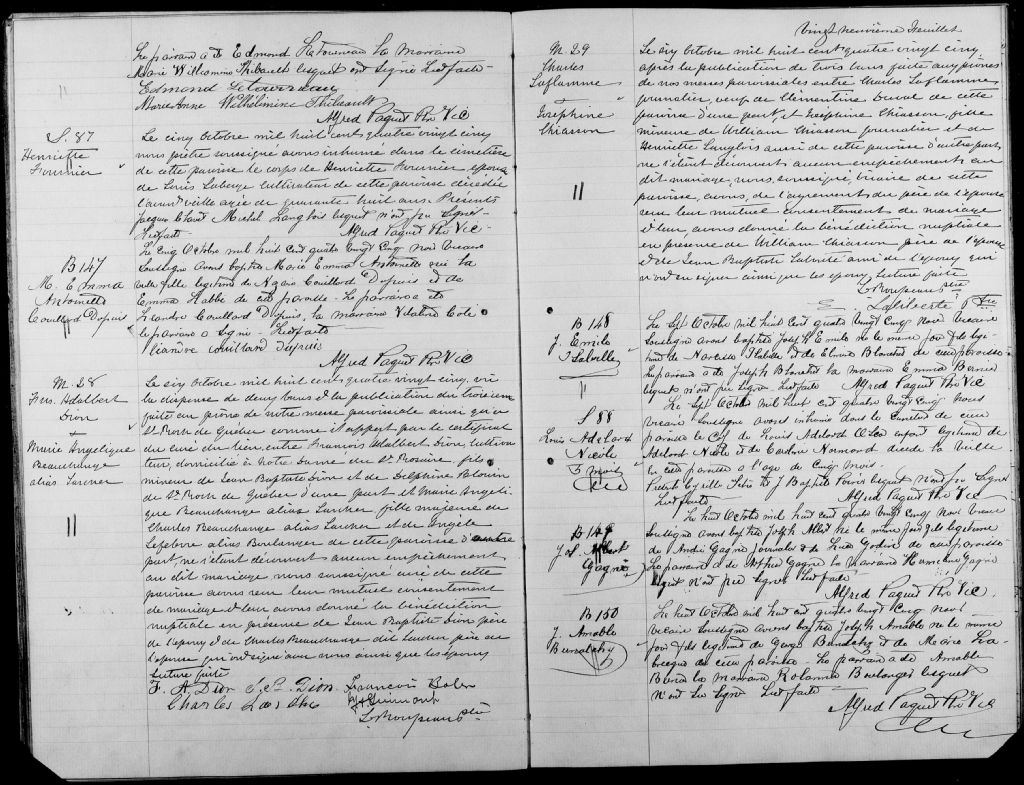 Le parrain a été Edmond Letourneau la Marraine
Marie Willemina Thibault lesquels ont signé Lect faite
Edmond Letourneau
Marie Anne Wilhelmine Thibeault
Alfred Paquet Ptre Vic
S. 87
Henriette
Fournier
Le cinq octobre mil huit cent quatre vingt cinq
nous prêtre soussigné avons inhumé dans le cimetière
de cette paroisse le corps de Henriette Fournier épouse
de Louis Laberge cultivateur de cette paroisse décédée
l'avant veille agée de quarante huit ans. Présents
Jacques Michel Langlois lesquels n'ont pu signer
Lect faite
Alfred Paquet Ptre Vic
B 147
M. E mma
Antoinette
Couillard Dupuis
Le Cinq Octobre mil huit cent quatre vingt Cinq Nous Vicaire
Soussigné avons baptisé Marie Emma Antoinette née la
veille fille légitime de Couillard Dupuis et de
Emma Labbé de cette paroisse Le parrain a été
Leandre Couillard Dupuis, la marraine
le parrain a signé Lect faite
Leandre Couillard Dupuis
Alfred Paquet Ptre Vic
M. 28
Frs. Adalbert
Dion
Marie Angelique
Beauchange
alias Larher
Le six octobre mil huit cent quatre vingt cinq, vu
la dispense de deux bans et la publication du troisième
faite au prône de notre messe paroissiale ainsi qu'à
St Roch de Québec comme il appert par le certificat
du curé du lieu, entre François Adalbert Dion, cultiva
teur, domicilié à Notre Dame du St Rosaire, fils
mineur de Jean Baptiste Dion et de Delphine Blouin
de St Roch de Québec d'une part et Marie Angeli
que Beauchange alias Larher, fille majeure de
Charles Beauchange alias Larher et de Angèle
Lefebvre alias Boulanger de cette paroisse d'autre
part, ne s'étant découvert aucun empêchement
au dit mariage, nous soussigné curé de cette
paroisse avons reçu leur mutuel consentement
de mariage et leur avons donné la bénédiction
nuptiale en présence de Jean Baptiste Dion père
de l'époux et de Charles Beauchange dit Larher père de
l'épouse qui ont signé avec nous ainsi que les époux
Lecture faite
F. A. Dion J. Bte Dion François
Charles
ptre
Vingt neuvième Feuillet
M 29
Charles
Laflamme
Josephine
Chiasson
Le six octobre mil huit cent quatre vingt cinq
après la publication de trois bans faite aux prônes
de nos messes paroissiales entre Charles Laflamme
journalier, veuf de Clémentine Duval de cette
paroisse d'une part, et Josephine Chiasson, fille
mineure de William Chiasson journalier et de
Henriette Langlois aussi de cette paroisse d'autre part,
ne s'étant découvert aucun empêchement au
dit mariage, nous, soussigné, vicaire de cette
paroisse, avons, de l'agrément du père de l'épouse
reçu leur mutuel consentement de mariage
et leur avons donné la bénédiction nuptiale
en présence de William Chiasson père de l'épouse
et de Jean Baptiste Laberté ami de l'époux qui
n'ont su signer ainsi que les époux, Lecture faite
ptre
E. Laliberté Ptre
B 148
J. Emile
Le Sept Octobre mil huit cent quatre vingt Cinq Nous Vicaire
Soussigné avons baptisé Joseph Emile né le même jour fils légi
time de Narcisse et de Blanchet de cette paroisse
Le parrain a été Joseph Blanchet la marraine Emma Bernier
lesquels n'ont pu signer Lect faite Alfred Paquet Ptre Vic
S 88
Louis Adelard
Nicole
5 mois
Le Sept Octobre mil huit cent quatre vingt Cinq Nous
vicaire soussigné avons inhumé dans le Cimetière de cette
paroisse le Corps de Louis Adelard Nicole enfant légitime de
Adelard Nicole et de Caroline Normand décédé la veille
en cette paroisse à l'age de Cinq mois.
J Baptiste lesquels n'ont pu Signer
Lect faite
Alfred Paquet Ptre Vic
B 149
J. Albert
Gagné
Le huit Octobre mil huit cent quatre vingt Cinq Nous Vicaire
Soussigné avons baptisé Joseph Albert né le même jour fils légitime
de André Gagné Journalier et de Godin de cette paroisse
Le parrain a été Gagné la marraine Gagné
lesquels n'ont pu signer Lect faite
Alfred Paquet Ptre Vic.
B 150
J. Amable
Le huit Octobre mil huit cent quatre vingt Cinq Nous
Vicaire Soussigné avons baptisé Joseph Amable né le même
jour fils légitime de George et de Marie La
brecque de cette paroisse Le parrain a été Amable
la marraine Boulanger lesquels
n'ont su signer Lect faite
Alfred Paquet Ptre Vic